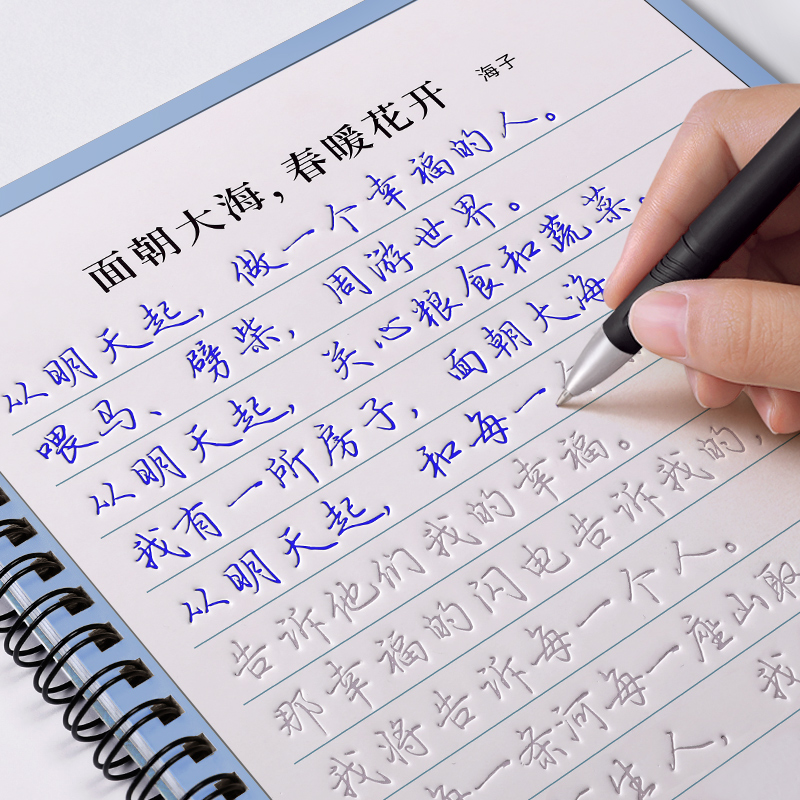 面朝大海，春暖花开
海子
从明天起，做一个幸福的人。
喂马、劈柴，周游世界。
从明天起，关心粮食和蔬菜。
我有一所房子，面朝大海
从明天起，和每一
告诉他们我的幸福。
那幸福的闪电告诉我的，
我将告诉每一个人。
每一条河每一座山取
生人，我